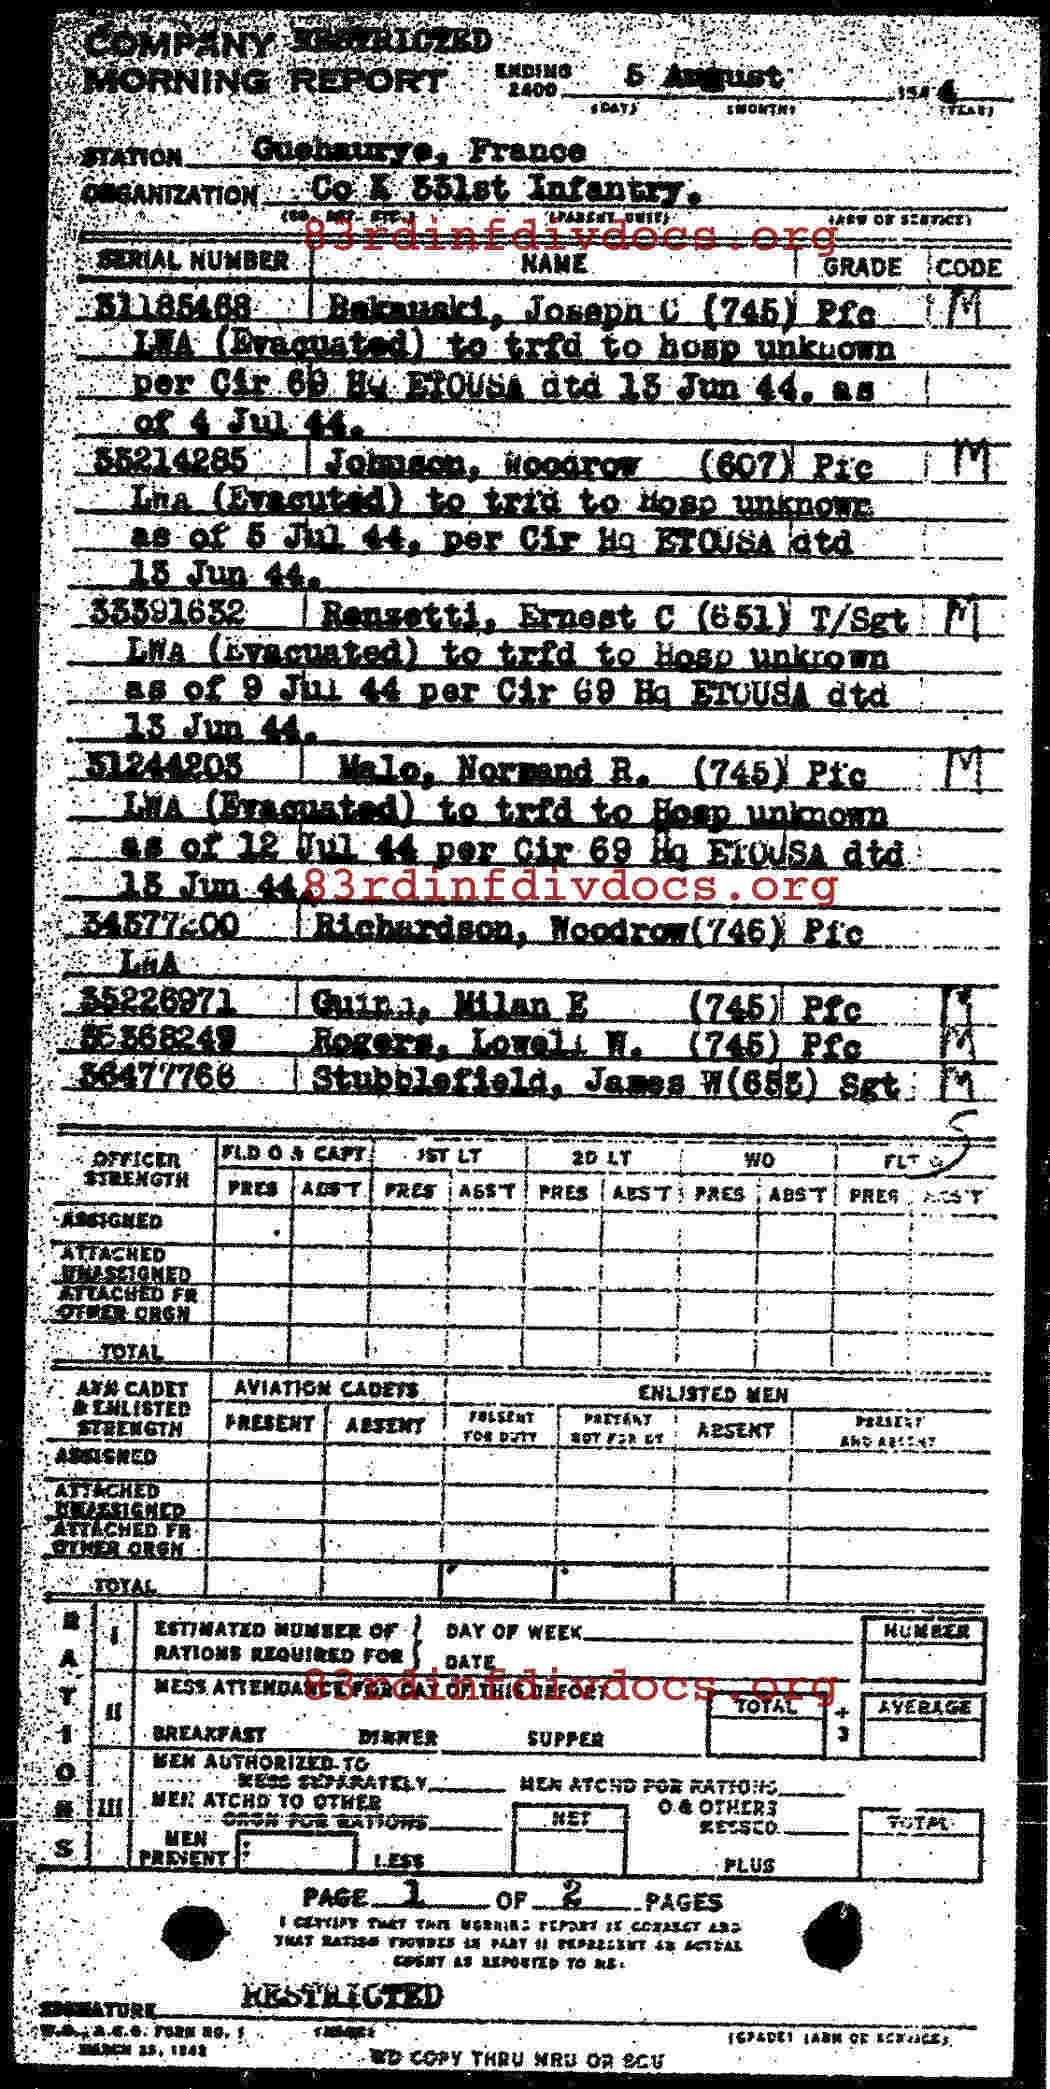 COMPANY RESTRICTED
MORNING REPORT ENDING 2400 5 August 1944
(DAY) (MONTH) (YEAR)
STATION Guehaurye, France
ORGANIZATION Co K 331st Infantry.
(CO. DET. ETC.) (PARENT UNIT) (ARM OF SERVICE)
83rdinfdivdocs.org
SERIAL NUMBER NAME GRADE CODE
31185468 Bakauski, Joseph C (745) Pfc M
LWA (Evacuated) to trfd to hosp unknown
per Cir 69 Hq ETOUSA dtd 13 Jun 44. as
of 4 Jul 44.
33214285 Johnson, Woodrow (607) Pfc M
LWA (Evacuted) to trfd to Hosp unknown
as of 5 Jul 44, per Cir Hq ETOUSA dtd
13 Jun 44.
33391632 Renzetti, Ernest C (651) T/Sgt M
LWA (Evacuated) to trfd to Hosp unknown
as of 9 Jul 44 per Cir 69 Hq ETOUSA dtd
13 Jun 44.
31244203 Malo, Normand R. (745) Pfc M
LWA (Evacuated) to trfd to Hosp unknown
as of 12 Jul 44 per Cir 69 Hq ETOUSA dtd
13 Jun 44.
83rdinfdivdocs.org
Richardson, Woodrow (746) Pfc
LWA
35226971 Milan E (745) Pfc M
35368249 Rogers, Lowell W. (745) Pfc M
36477766 Stubblefield, James W (653) Sgt M
5
OFFICER STRENGTH FLD O & CAPT 1ST LT 2D LT WO FLT O
PRES ABS'T PRES ABS'T PRES ABS'T PRES ABS'T PRES ABS'T
ASSIGNED
ATTACHED
UNASSIGNED
ATTACHED FR
OTHER ORGN
TOTAL
AVN CADET & ENLISTED STRENGTH AVIATION CADETS ENLISTED MEN
PRESENT ABSENT PRESENT FOR DUTY PRESENT NOT FOR DY ABSENT PRESENT AND ABSENT
ASSIGNED
ATTACHED
UNASSIGNED
ATTACHED FR
OTHER ORGN
TOTAL
RATIONS
I ESTIMATED NUMBER OF RATIONS REQUIRED FOR DAY OF WEEK NUMBER
DATE
II MESS ATTENDANCE FOR DAY OF THIS REPORT TOTAL ÷ 3 AVERAGE
83rdinfdivdocs.org
BREAKFAST DINNER SUPPER
III MEN AUTHORIZED TO
MESS SEPARATELY MEN ATCHD FOR RATIONS
MEN ATCHD TO OTHER
ORGN FOR RATIONS NET O & OTHERS MESSED TOTAL
MEN PRESENT LESS PLUS
PAGE 1 OF 2 PAGES
I CERTIFY THAT THIS MORNING REPORT IS CORRECT AND
THAT RATION FIGURES IN PART II REPRESENT AN ACTUAL
COUNT AS REPORTED TO ME:
RESTRICTED
SIGNATURE
W.D., A.G.O. FORM NO. 1 (NAME) (GRADE) (ARM OF SERVICE)
MARCH 25, 1942
WD COPY THRU MRU OR SCU